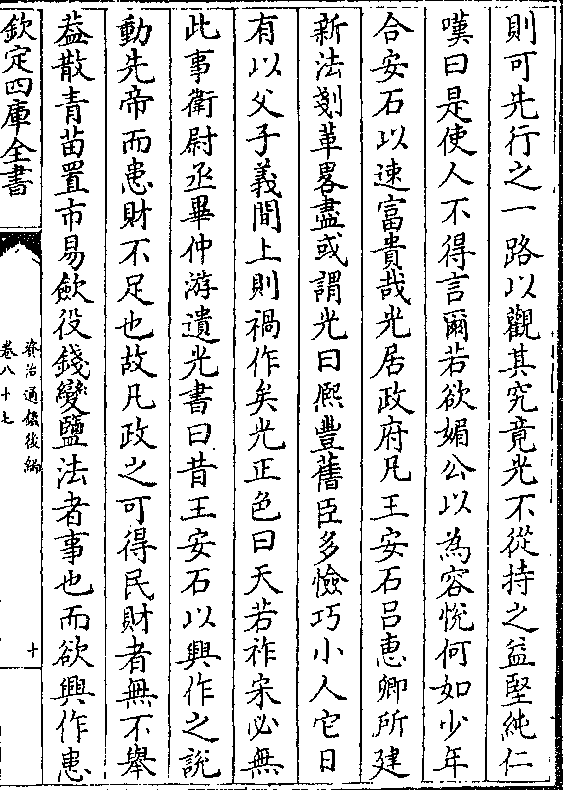 則可先行之一路以觀其究竟光不從持之益堅純仁
嘆曰是使人不得言爾若欲媚公以為容悅何如少年
合安石以速富貴哉光居政府凡王安石呂惠卿所建
新法剗革畧盡或謂光曰熈豐舊臣多憸巧小人它日
有以父子義間上則禍作矣光正色曰天若祚宋必無
此事衛尉丞畢仲游遺光書曰昔王安石以興作之說
動先帝而患財不足也故凡政之可得民財者無不舉
葢散青苗置市易歛役錢變鹽法者事也而欲興作患
欽定四庫全書
資治通鑑後編
卷八十七
十